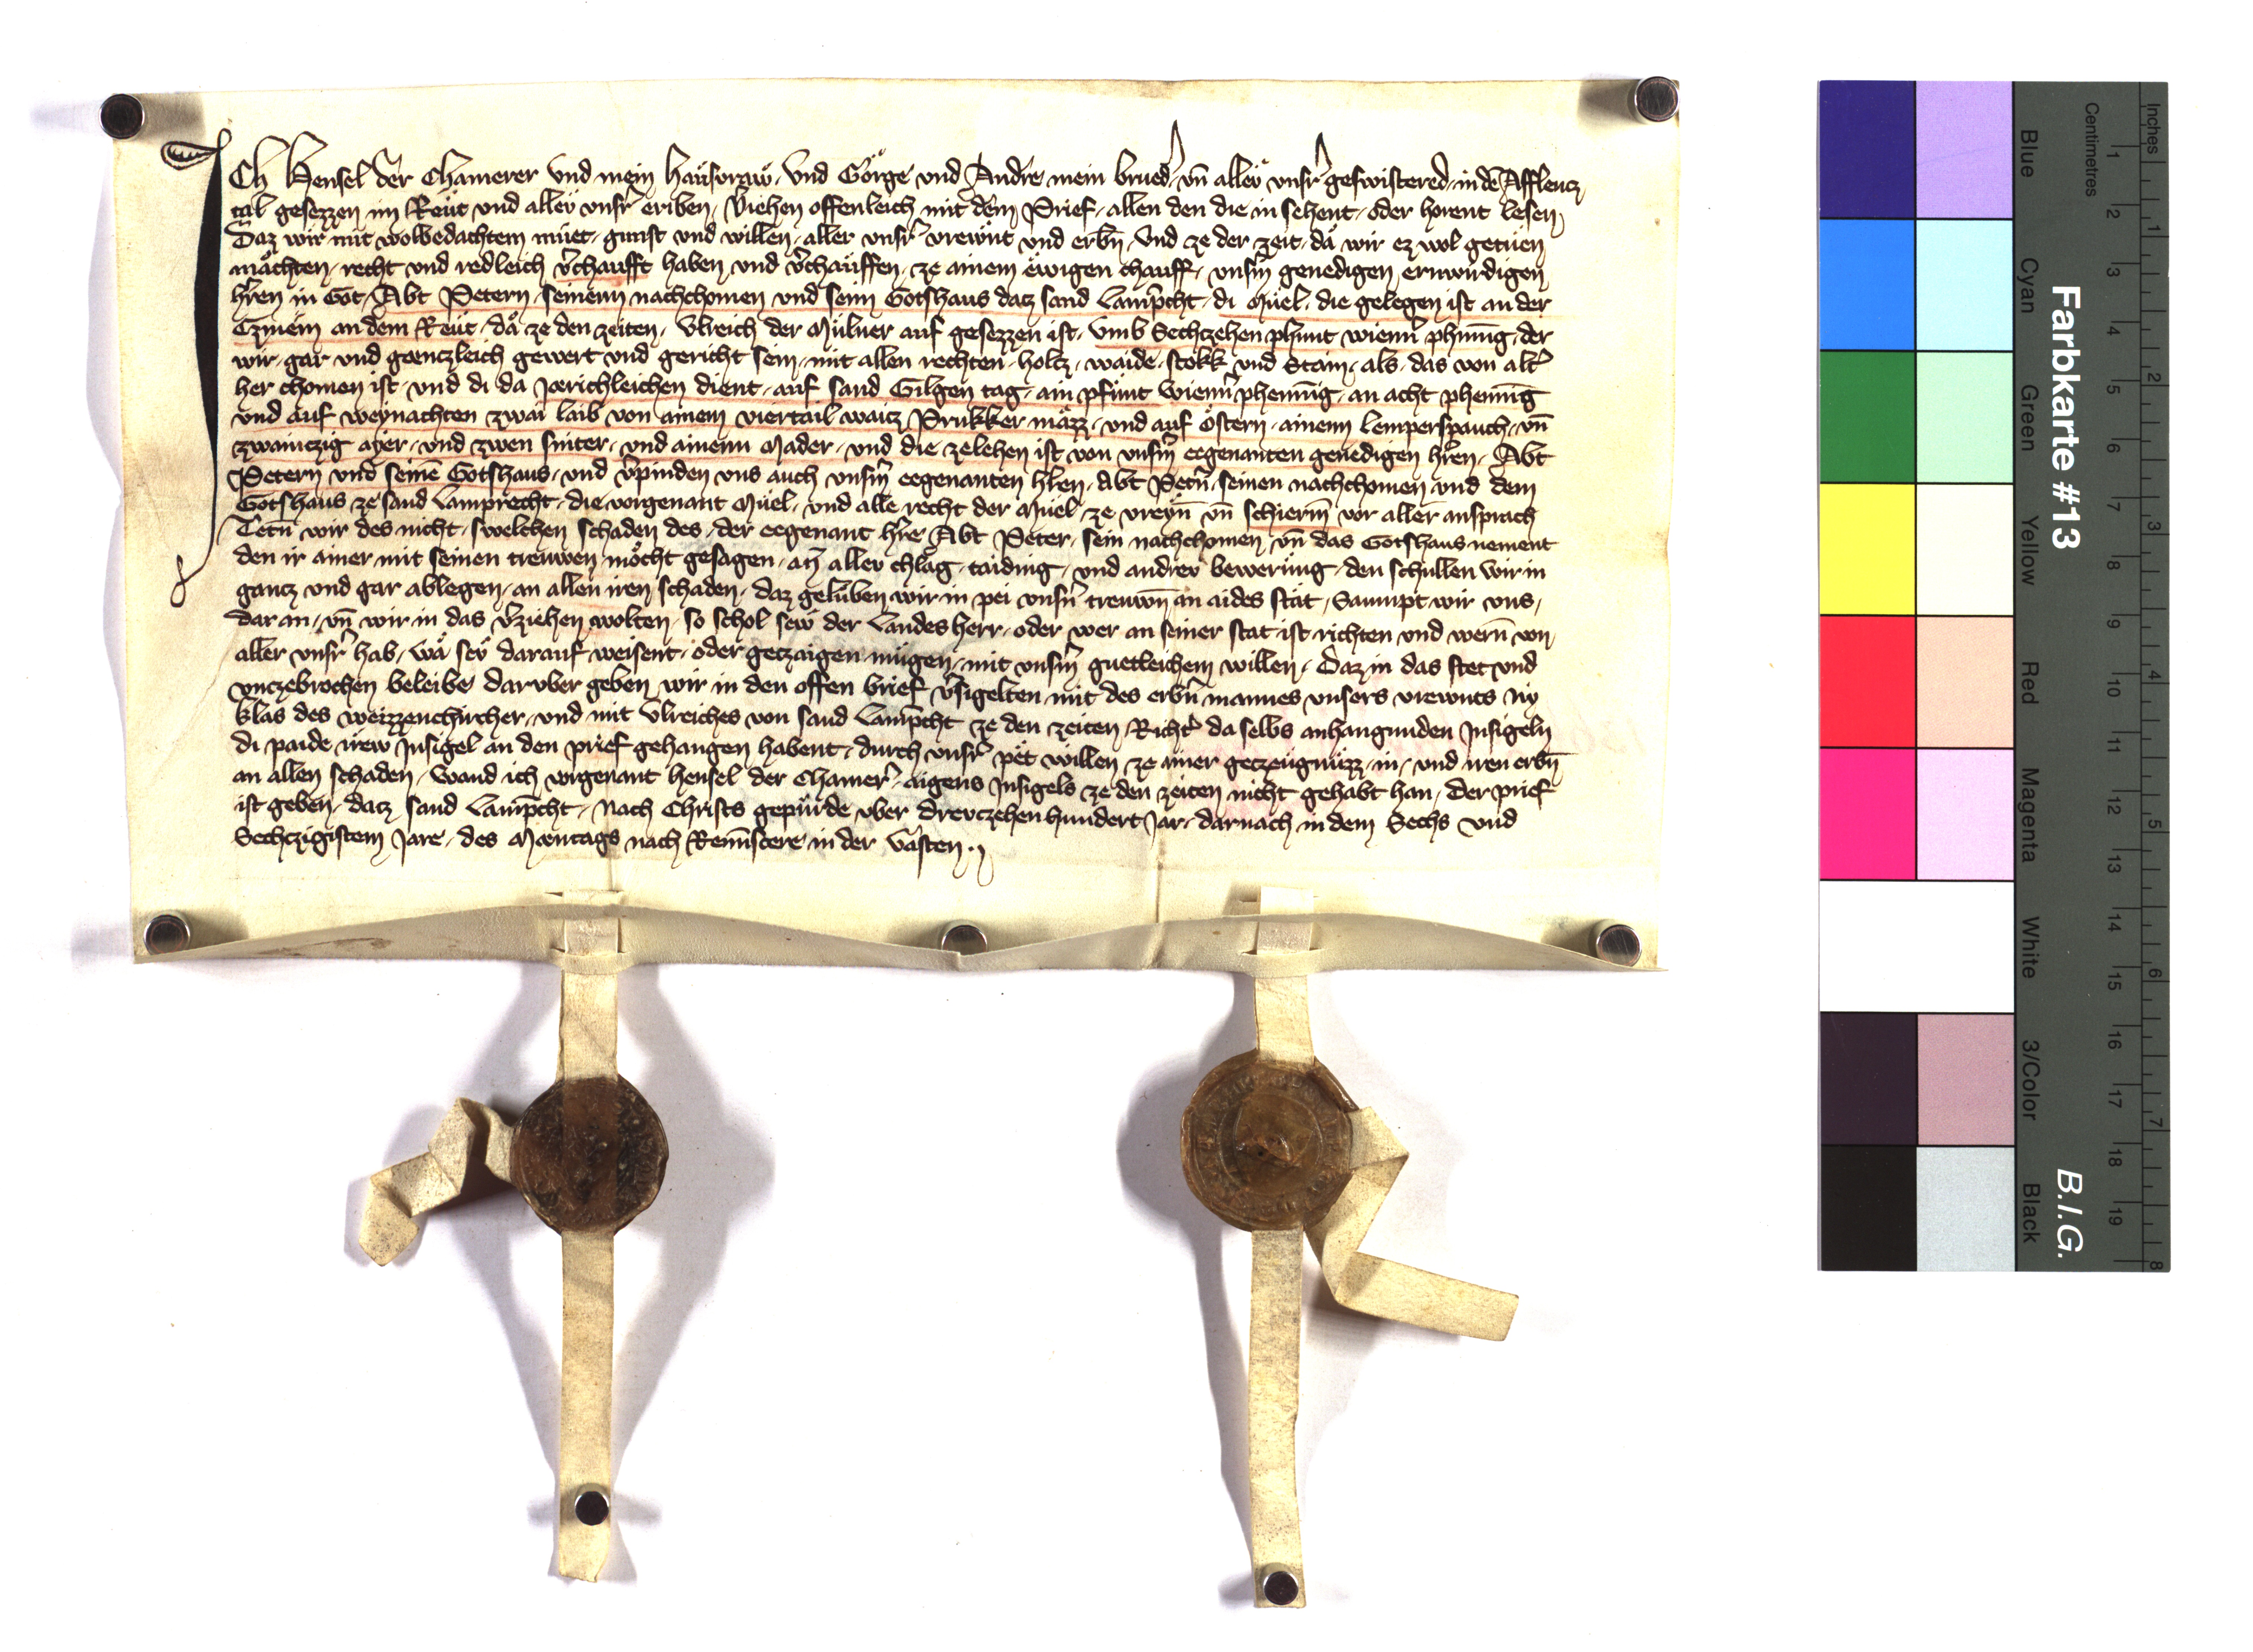 Ich Hensel der Chamerer und mein hausvraw, und Görge und Andre mein brued', vn̄ aller vnsr' geswistered, in de̅ Afflencz
tal gesezzen im Reut und aller vnsr' eriben, V'iehen offenleich mit dem Prief, allen den die in sehent, oder horent lesen,
Daz wir mit wolbedachtem müet, gunst und willen, aller vnsr' vrewnt und erbn̄, und ze der zeit, da wir ez wol getuen
mächten, recht und redleich v'chaufft haben und v'chauffen, ze ainem ewigen chauff, vnsm̄ genedigen erwirdigen
hr̄en in Got, Abt Petern, seinenn nachchomen und seim Gotshaus datz sand Lamp̄cht, di Müel, die gelegen ist an der
Gzmein an dem Reut, da ze den zeiten, Vlreich der Mülner auf gesezzen ist, vmb Sechczehen phunt wienn' phnīng, der
wir, gar und genczleich gewert und gericht sein, mit allen rechten, holtz, waide, stokk und Stain, als, das von alt'
her chomen ist, und di da Jerichleichen dient, auf sand Gilgen tag, ain pfunt wienn' phennīg, an acht phennīg
und auf weynachten zwai laib von ainem viertail waitz Prukker mäzz, und auf östern, ainenn lemperspauch, vn̄
zwainczig ayer, und zwen sniter, und ainenn Mader, und die zelehen ist von vnsm̄ eegenanten genedigen hr̄en, Abt
Petern und seine̅ Gotshaus, und v'pinden vns auch vnsm̄ eegenanten hr̄en, Abt Petn̄, seinen nachchomen und dem
Gotshaus ze sand Lamprecht, die vorgenant Müel, und alle recht der Müel, ze vreyn̄ vn̄ schierm̄ vor aller ansprach
Tetn̄ wir des nicht, swelchen schaden des, der eegenant hr̄e Abt Peter, sein nachchomen vn̄ das Gotshaus nement
den ir ainer mit seinen trewen möcht gesagen, an aller chlag, taiding, und andrer bewerung, den schullen wir in
gantz und gar ablegen, an allen iren schaden, daz geluben wir in pei vnsn̄ trewn̄ an aides stat, Saumpt wir vns,
dar an, vn̄ wir in das v'ziehen wolten, so schol sew der Landes herr, oder wer an seiner stat ist richten und wern̄ von
aller vnsr' hab, wa sew darauf, weisent, oder getzaigen mügen, mit vnsm̄ guetleichem willen, Daz in das stet und
vnczebrochen beleibe, daruber geben wir in den offen brief v'sigelten mit des erbn̄ mannes vnsers vrewnts Ny
klas des weizzenchircher, und mit Vlreiches von sand Lamp̄cht ze den zeiten Richt' da selbs anhangunden Insigeln
di paide irew Insigel an den prief gehangen habent, durch vnsr' pet willen, ze ainer getzeugnüzz, in, und iren erbn̄
an allen schaden, Wand ich vorgenant Hensel der Chamer', aigens Insigels ze den zeiten nicht gehabt han, Der prief
ist geben, datz sand Lamp̄cht, Nach Christs gepürde vber drewczehen hundert Jar, darnach in dem Sechs und
Sechczigistem Jare, des Mæntags nach Remīscere in der Vasten.
Farbkarte #13
B.I.G.
Inches
Centimetres
1 2 3 4 5 6 7 8 9 10 11 12 13 14 15 16 17 18 19
1 2 3 4 5 6 7 8
Blue
Cyan
Green
Yellow
Red
Magenta
White
3/Color
Black